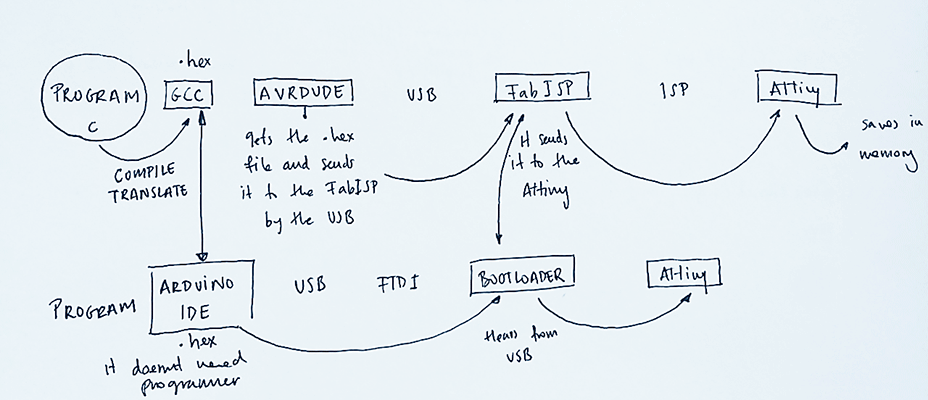 .hex
PROGRAM
C
GCC
AVRDUDE
USB
FabISP
ISP
Attiny
COMPILE
TRANSLATE
gets the .hex
file and sends
it to the FabISP
by the USB
It sends
it to the
Attiny
saves in
memory
PROGRAM
ARDUINO
IDE
USB
FTDI
BOOTLOADER
Attiny
.hex
it doesnt need
programmer
Hears from
USB